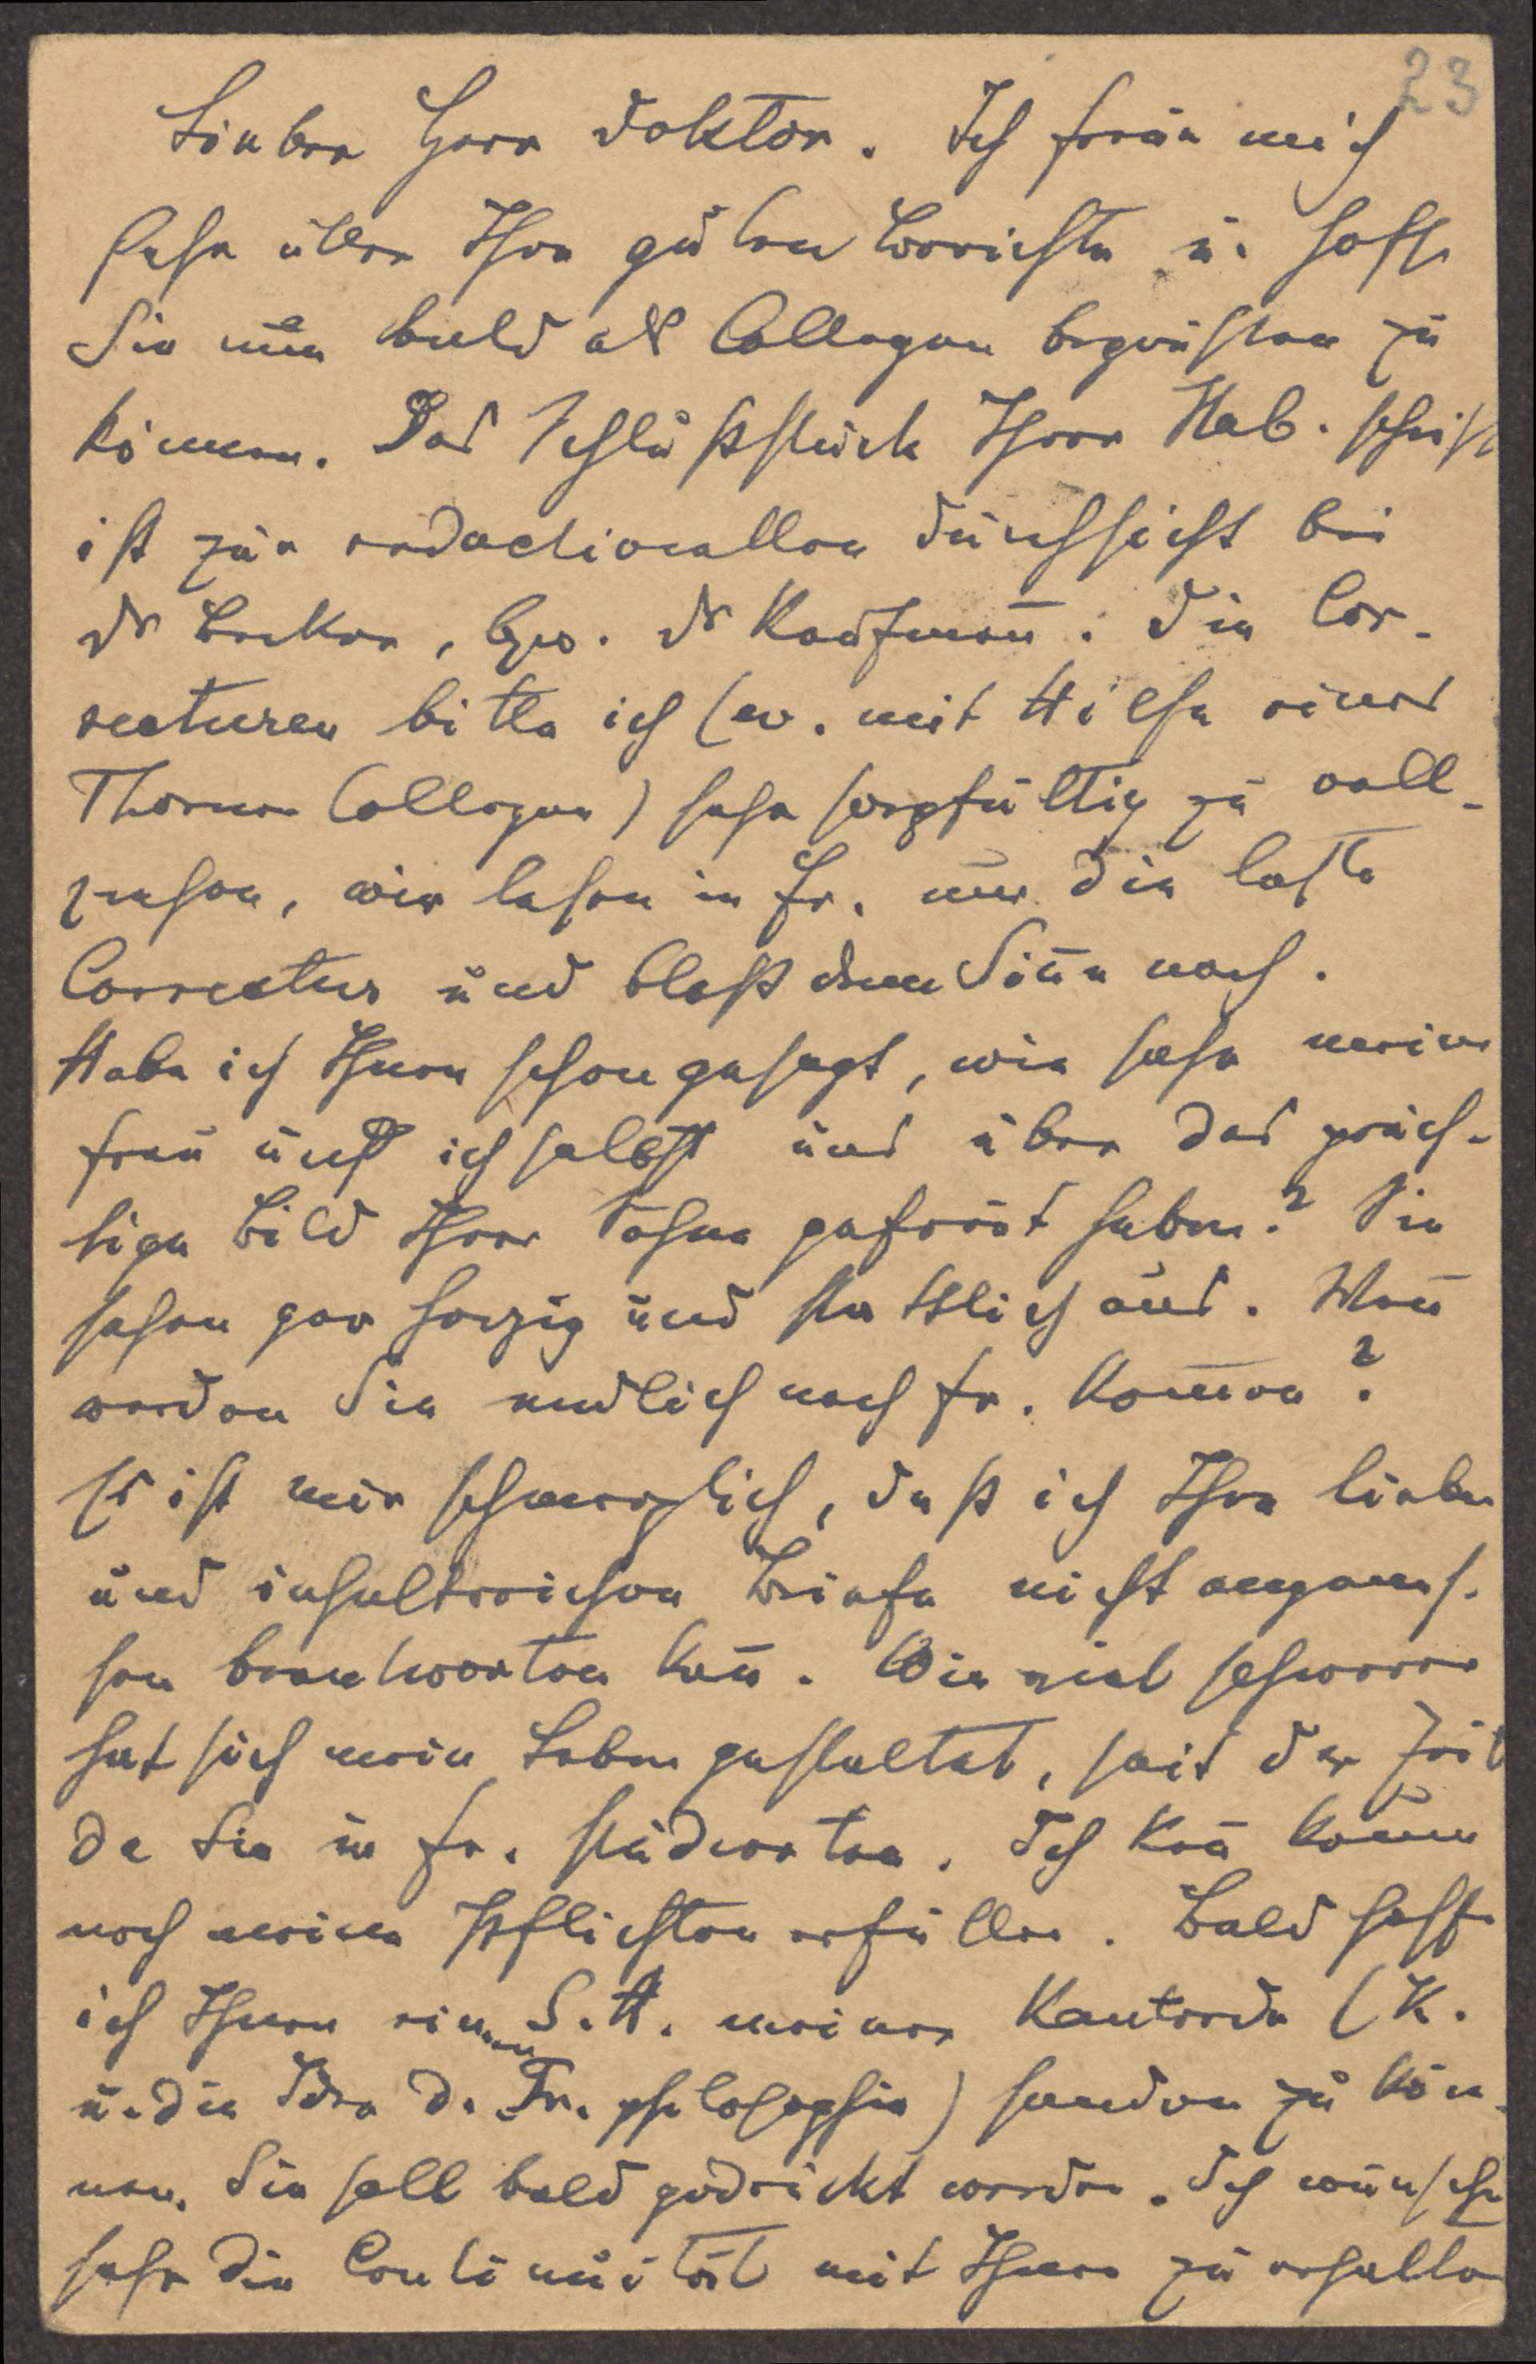 23
Lieber Herr Doktor. Ich freue mich
sehr über Ihre guten Berichte u. hoffe
Sie nun bald als Collegen begrüßen zu
können. Das Schlußstück Ihrer Hab.schrift
ist zur redactionellen Durchsicht bei
Dr Becker, bzw. Dr Kaufmann. Die Cor-
recturen bitte ich (ev. mit Hilfe eines
Thorner Collegen) sehr sorgfältig zu voll-
ziehen, wir lesen in Fr. nur die letzte
Correctur und bloß dem Sinn nach.
Habe ich Ihnen schon gesagt, wie sehr meine
Frau und ich selbst uns über das präch-
tige Bild Ihrer Söhne gefreut haben? Sie
sehen gar herzig und stattlich aus. Wann
werden Sie endlich nach Fr. kommen?
Es ist mir schmerzlich, daß ich Ihre lieben
und inhaltreichen Briefe nicht angemes-
sen beantworten kann. Wie viel schwerer
hat sich mein Leben gestaltet, seit der Zeit
da Sie in Fr. studierten. Ich kann kaum
noch meine Pflichten erfüllen. Bald hoffe
ich Ihnen einen S.A. meiner Kantrede (K.
u. die Idee d. Tr. philosophie) senden zu kön-
nen. Sie soll bald gedruckt werden. Ich wünsche
sehr die Continuität mit Ihnen zu erhalten